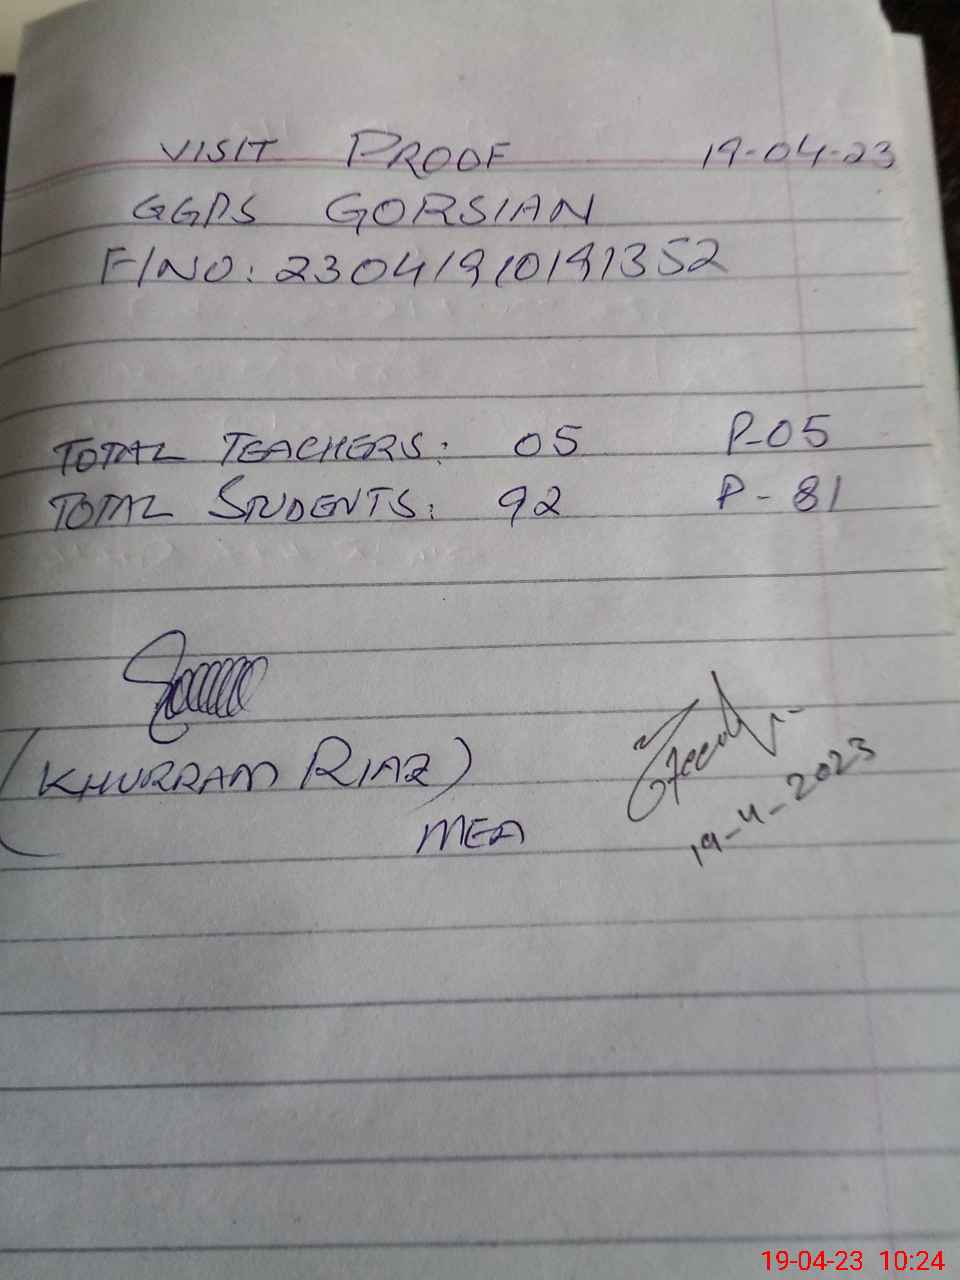 VISIT PROOF 19-04-23
GGPS GORSIAN
F/NO: 23041910191352
TOTAL TEACHERS: 05 P-05
TOTAL STUDENTS: 92 P-81
(KHURRAM RIAZ)
MEA
19-4-2023
19-04-23 10:24